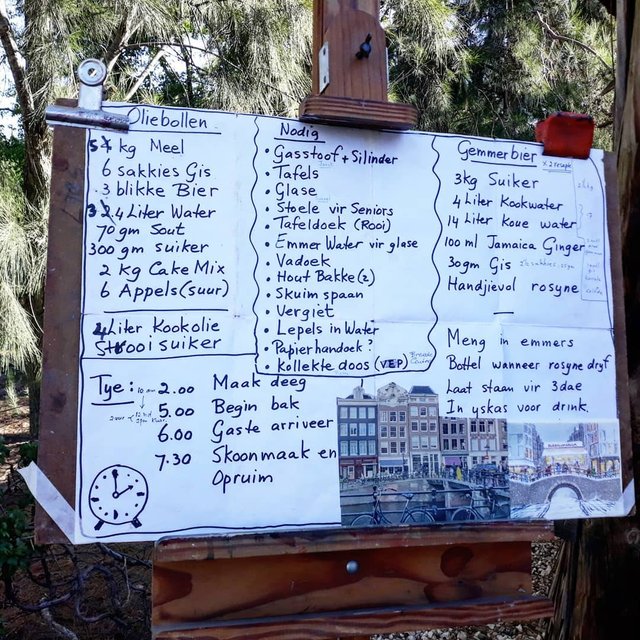 Oliebollen
5 kg Meel
6 sakkies Gis
3 blikke Bier
3 2,4 Liter Water
70 gm Sout
300 gm suiker
2 kg Cake Mix
6 Appels (suur)
4 Liter Kookolie
Strooi suiker
Nodig
• Gasstoof + Silinder
• Tafels
• Glase
• Stoele vir Seniors
• Tafeldoek (Rooi)
• Emmer Water vir glase
• Vadoek
• Hout Bakke (2)
• Skuim spaan
• Vergiet
• Lepels in Water
• Papierhandoek?
• Kollekte doos (VEP)
Gemmerbier
x 2 resepte
3kg Suiker
4 Liter Kookwater
14 Liter Koue water
100 ml Jamaica Ginger
30gm Gis
Handjievol rosyne
Meng in emmers
Bottel wanneer rosyne dryf
Laat staan vir 3 dae
In yskas voor drink.
Tye:
2.00 Maak deeg
5.00 Begin bak
6.00 Gaste arriveer
7.30 Skoonmaak en
Opruim